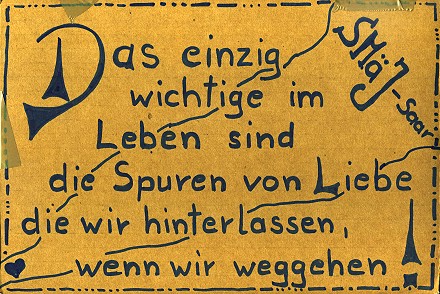 Das einzig
wichtige im
Leben sind
die Spuren von Liebe
die wir hinterlassen,
wenn wir weggehen!
SHäJ-Saar